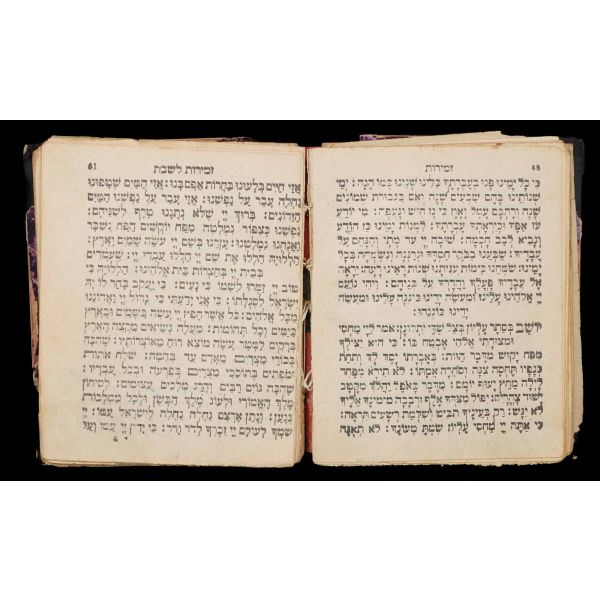 48 זמירות
כי כל ימינו פנו בעברתך כלינו שנינו כמו הגה: ימי
שנותינו בהם שבעים שנה ואם בגבורת שמונים
שנה ורהבם עמל ואון כי גז חיש ונעפה: מי יודע
עז אפך וכיראתך עברתך: למנות ימינו כן הודע
ונביא לבב חכמה: שובה יי עד מתי והנחם על
עבדיך: שבענו בבקר חסדך ונרננה ונשמחה בכל
ימינו: שמחנו כימות עניתנו שנות ראינו רעה: יראה
אל עבדיך פעלך והדרך על בניהם: ויהי נועם
יי אלהינו עלינו ומעשה ידינו כוננה עלינו ומעשה
ידינו כוננהו:
ישב בסתר עליון בצל שדי יתלונן: אמר ליי מחסי
ומצודתי אלהי אבטח בו: כי הוא יצילך
מפח יקוש מדבר הוות: באברתו יסך לך ותחת
כנפיו תחסה צנה וסחרה אמתו: לא תירא מפחד
לילה מחץ יעוף יומם: מדבר באפל יהלך מקטב
ישוד צהרים: יפול מצדך אלף ורבבה מימינך אליך
לא יגש: רק בעיניך תביט ושלמת רשעים תראה:
כי אתה יי מחסי עליון שמת מעונך: לא תאנה
זמירות לשבת 61
אזי חיים בלעונו בחרות אפם בנו: אזי המים שטפונו
נחלה עבר על נפשנו: אזי עבר על נפשנו המים
הזדונים: ברוך יי שלא נתננו טרף לשניהם:
נפשנו כצפור נמלטה מפח יוקשים הפח נשבר
ואנחנו נמלטנו: עזרנו בשם יי עשה שמים וארץ:
הללויה הללו את שם יי הללו עבדי יי: שעמדים
בבית יי בחצרות בית אלהינו: הללויה כי
טוב יי זמרו לשמו כי נעים: כי יעקב בחר לו יה
ישראל לסגלתו: כי אני ידעתי כי גדול יי ואדוננו
מכל אלהים: כל אשר חפץ יי עשה בשמים ובארץ
בימים וכל תהומות: מעלה נשיאים מקצה הארץ
ברקים למטר עשה מוצא רוח מאוצרותיו: שהכה
בכורי מצרים מאדם עד בהמה: שלח אותות
ומפתים בתוככי מצרים בפרעה ובכל עבדיו:
שהכה גוים רבים והרג מלכים עצומים: לסיחון
מלך האמורי ולעוג מלך הבשן ולכל ממלכות
כנען: ונתן ארצם נחלה נחלה לישראל עמו: יי
שמך לעולם יי זכרך לדר ודר: כי ידין יי עמו ועל